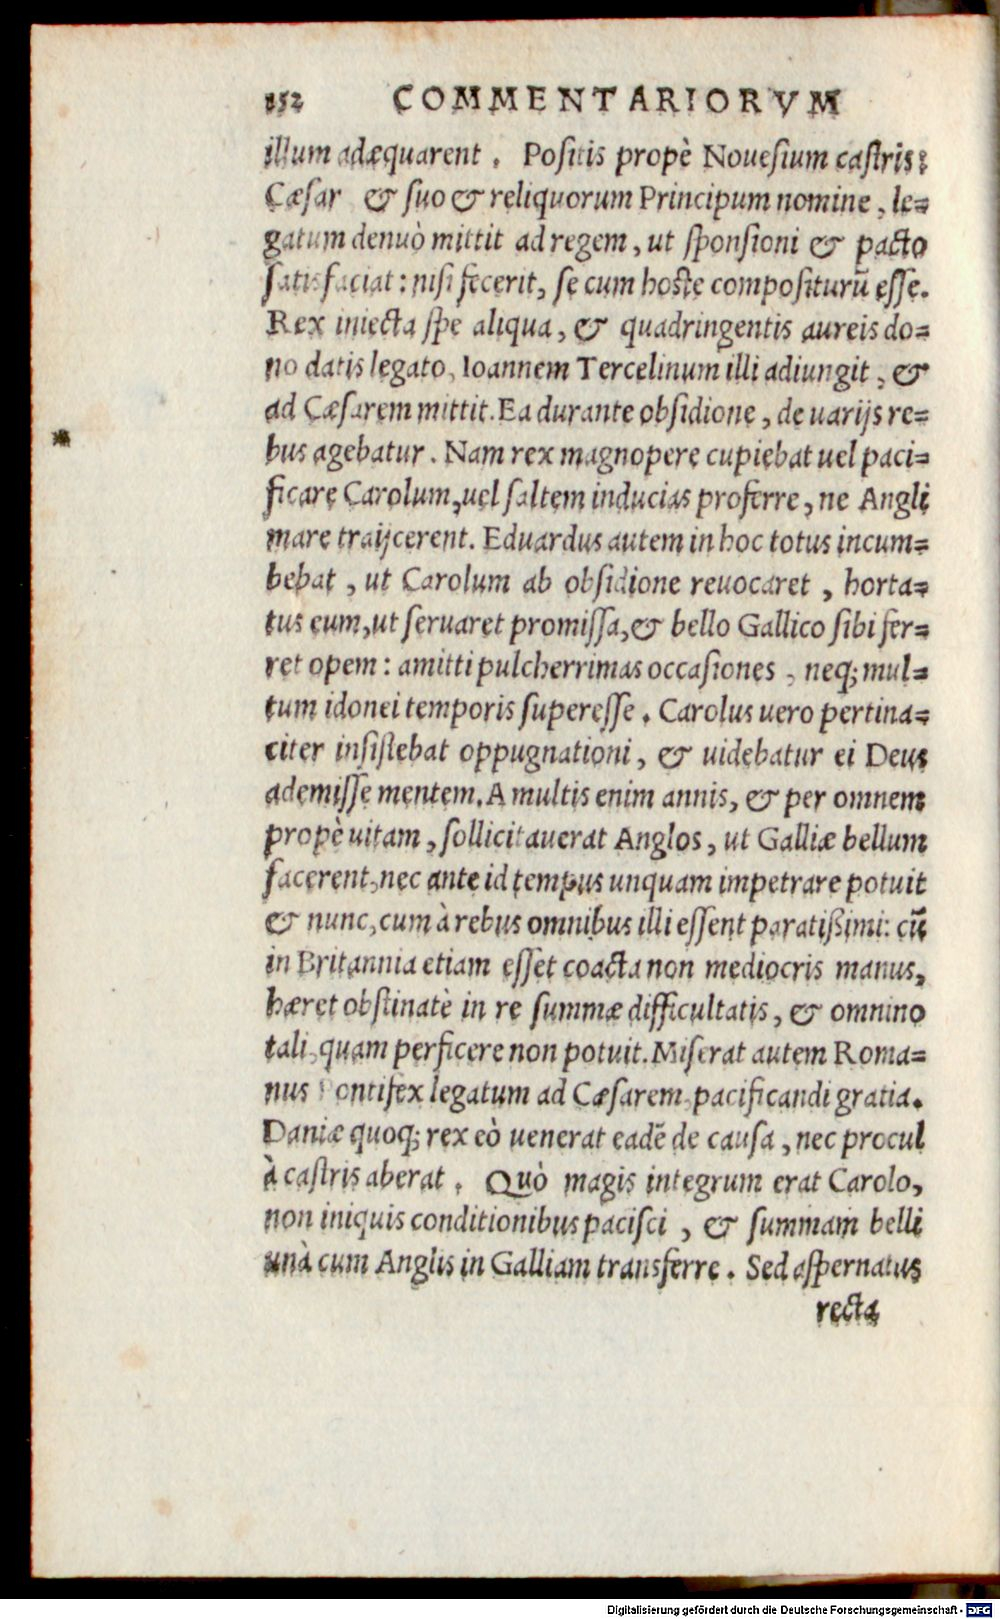 152 COMMENTARIORVM
illum adæquarent. Positis propè Nouesium castris:
Cæsar & suo & reliquorum Principum nomine, le=
gatum denuò mittit ad regem, ut sponsioni & pacto
satisfaciat: nisi fecerit, se cum hoste compositurũ esse.
Rex iniecta spe aliqua, & quadringentis aureis do=
no datis legato, Ioannem Tercelinum illi adiungit, &
ad Cæsarem mittit. Ea durante obsidione, de uarijs re=
bus agebatur. Nam rex magnopere cupiebat uel paci=
ficare Carolum, uel saltem inducias proferre, ne Angli
mare traijcerent. Eduardus autem in hoc totus incum=
bebat, ut Carolum ab obsidione reuocaret, horta=
tus eum, ut seruaret promissa, & bello Gallico sibi fer=
ret opem: amitti pulcherrimas occasiones, neq; mul=
tum idonei temporis superesse. Carolus uero pertina=
citer insistebat oppugnationi, & uidebatur ei Deus
ademisse mentem. A multis enim annis, & per omnem
propè uitam, sollicitauerat Anglos, ut Galliæ bellum
facerent, nec ante id tempus unquam impetrare potuit
& nunc, cum à rebus omnibus illi essent paratißimi: cũ
in Britannia etiam esset coacta non mediocris manus,
hæret obstinatè in re summæ difficultatis, & omnino
tali, quam perficere non potuit. Miserat autem Roma=
nus Pontifex legatum ad Cæsarem, pacificandi gratia.
Daniæ quoq; rex eò uenerat eadẽ de causa, nec procul
à castris aberat. Quò magis integrum erat Carolo,
non iniquis conditionibus pacisci, & summam belli
unà cum Anglis in Galliam transferre. Sed aspernatus
recta
Digitalisierung gefördert durch die Deutsche Forschungsgemeinschaft - DFG